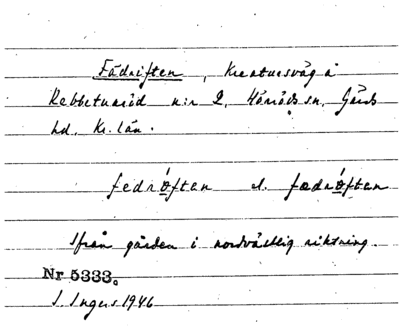 Fädriften, Kreatursväg å
Rebbetuaröd n:r 2, Hörröds sn, Gärds
hd. Kr. län.
fedrǿftan el. fædrǿftan
Ifrån gården i nordvästlig riktning.
Nr 5333.
I. Ingers 1946